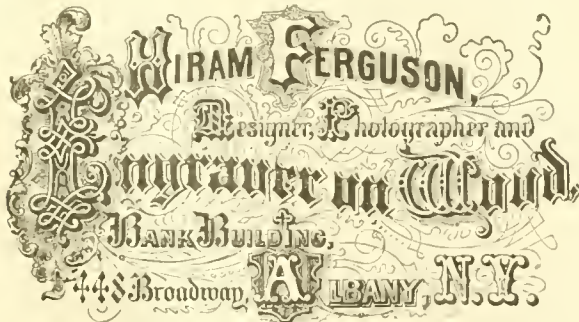 HIRAM FERGUSON,
Designer, Photographer and
Engraver on Wood.
BANK BUILDING,
448 Broadway, ALBANY, N.Y.